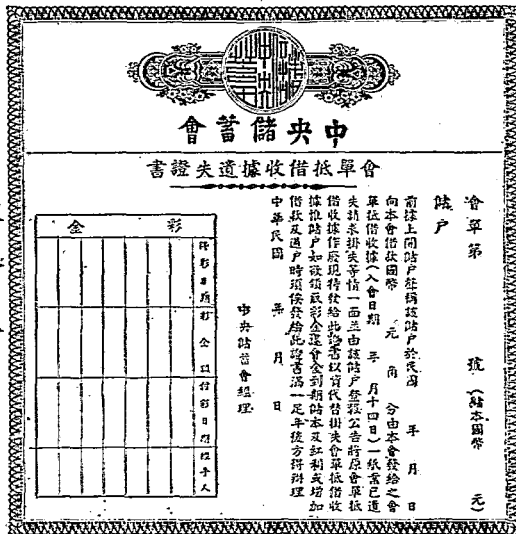 中央儲蓄會
會單抵借收據遺失證書
會單第　　號（儲本國幣　　元）
儲户
前據上開儲户登稱該儲户於民國　年　月　日
向本會借款國幣　元　角　分由本會發給之會
單抵借收據（入會日期　年　月十四日）一紙業已遺
失請求掛失等情一面並由該儲户登報公告將原會單抵
借收據作廢現特發給此證書以資代替掛失會單抵借收
據惟儲户如欲領取彩金退會金到期儲本及紅利或增加
借款及過户時須俟發給此證書滿一足年後方得辦理
中華民國　年　月　日
中央儲蓄會經理
彩金
得彩日期
彩金數
付彩日期
經手人